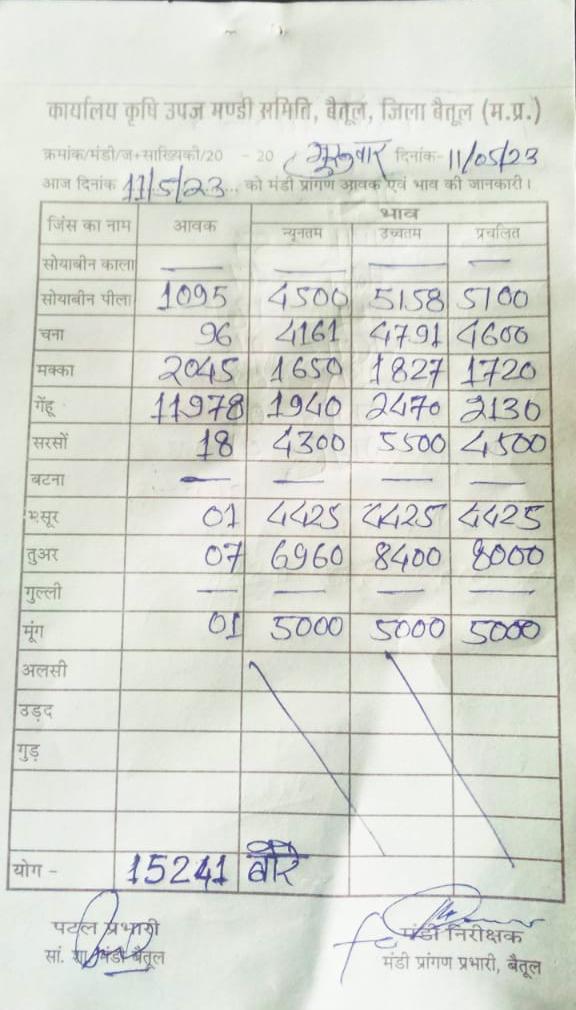 कार्यालय कृषि उपज मण्डी समिति, बैतूल, जिला बैतूल (म.प्र.)
क्रमांक/मंडी/ज+साख्यिकी/20 - 20 गुरूवार दिनांक- 11/05/23
आज दिनांक 11/5/23... को मंडी प्रांगण आवक एवं भाव की जानकारी।
जिंस का नाम आवक भाव
न्यूनतम उच्चतम प्रचलित
सोयाबीन काला — — — —
सोयाबीन पीला 1095 4500 5158 5100
चना 96 4161 4791 4600
मक्का 2045 1650 1827 1720
गेंहू 11978 1940 2470 2130
सरसों 18 4300 5500 4500
बटना — — — —
मसूर 01 4425 4425 4425
तुअर 07 6960 8400 8000
गुल्ली — — — —
मूंग 01 5000 5000 5000
अलसी
उड़द
गुड़
योग - 15241 बोरे
पटल प्रभारी मंडी निरीक्षक
सां. शा. मंडी बैतूल मंडी प्रांगण प्रभारी, बैतूल